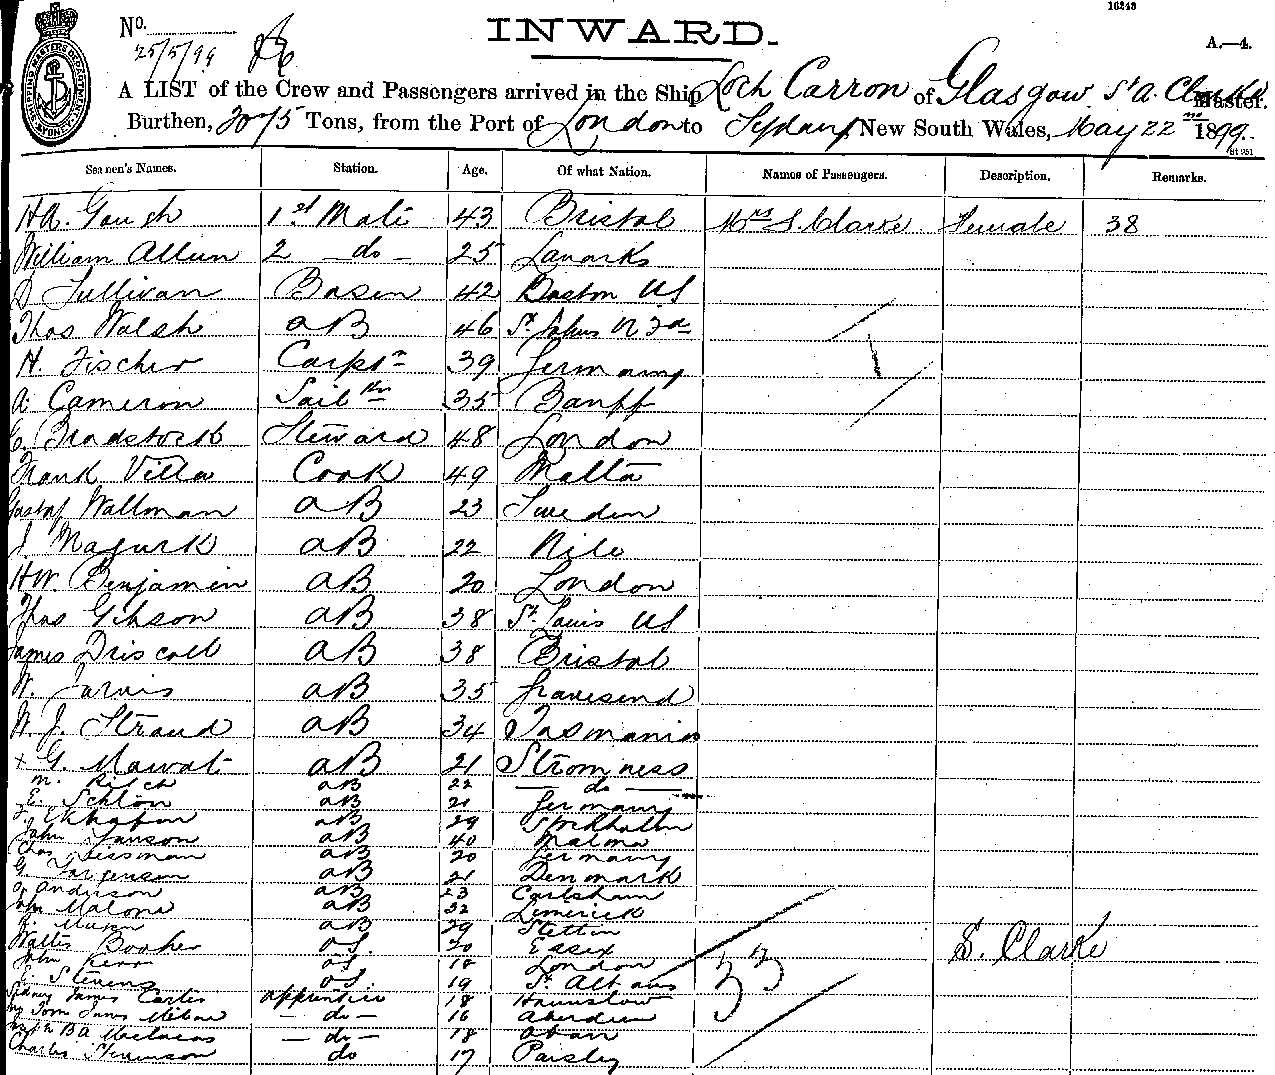 16243
No.
25/5/99
INWARD.
A.—4.
A LIST of the Crew and Passengers arrived in the Ship Loch Carron of Glasgow, St A. Clarke Master.
Burthen, 2075 Tons, from the Port of London to Sydney New South Wales, May 22nd 1899.
Seamen's Names. Station. Age. Of what Nation. Names of Passengers. Description. Remarks.
HA. Gough 1st Mate 43 Bristol Mrs S. Clarke Female 38
William Allun 2 do 25 Lanarks
D Sullivan Bosen 42 Boston US
Thos Walsh aB 46 St Johns N Fd
H. Fischer Carptr 39 Germany
A Cameron Sail 35 Banff
C. Bradstock Steward 48 London
Frank Villa Cook 49 Malta
Gustaf Wallman aB 23 Sweden
J. Magurk aB 22 Nile
HW. Benjamin aB 20 London
Thos Gibson aB 38 St Louis US
James Driscoll aB 38 Bristol
W. Jarvis aB 35 Gravesend
W. J. Stroud aB 34 Tasmania
+ G. Mowat aB 21 Stromness
M. aB 22 do
E. Schlön aB 21 Germany
aB 29 Stockholm
John Janson aB 40 Malmo
Chas aB 20 Germany
G Jorgenson aB 21 Denmark
O Anderson aB 23 Carlsham
John Malone aB 32 Limerick
Mann aB 29 Stettin
Walter Booker oS. 20 Essex S. Clarke
John Kerr oS 18 London
E. Stevens oS. 19 St Albans 33
Sidney James Carter apprentice 18 Hounslow
do 16 Aberdeen
B.A. do 18 Oban
Charles Stevenson do 17 Paisley